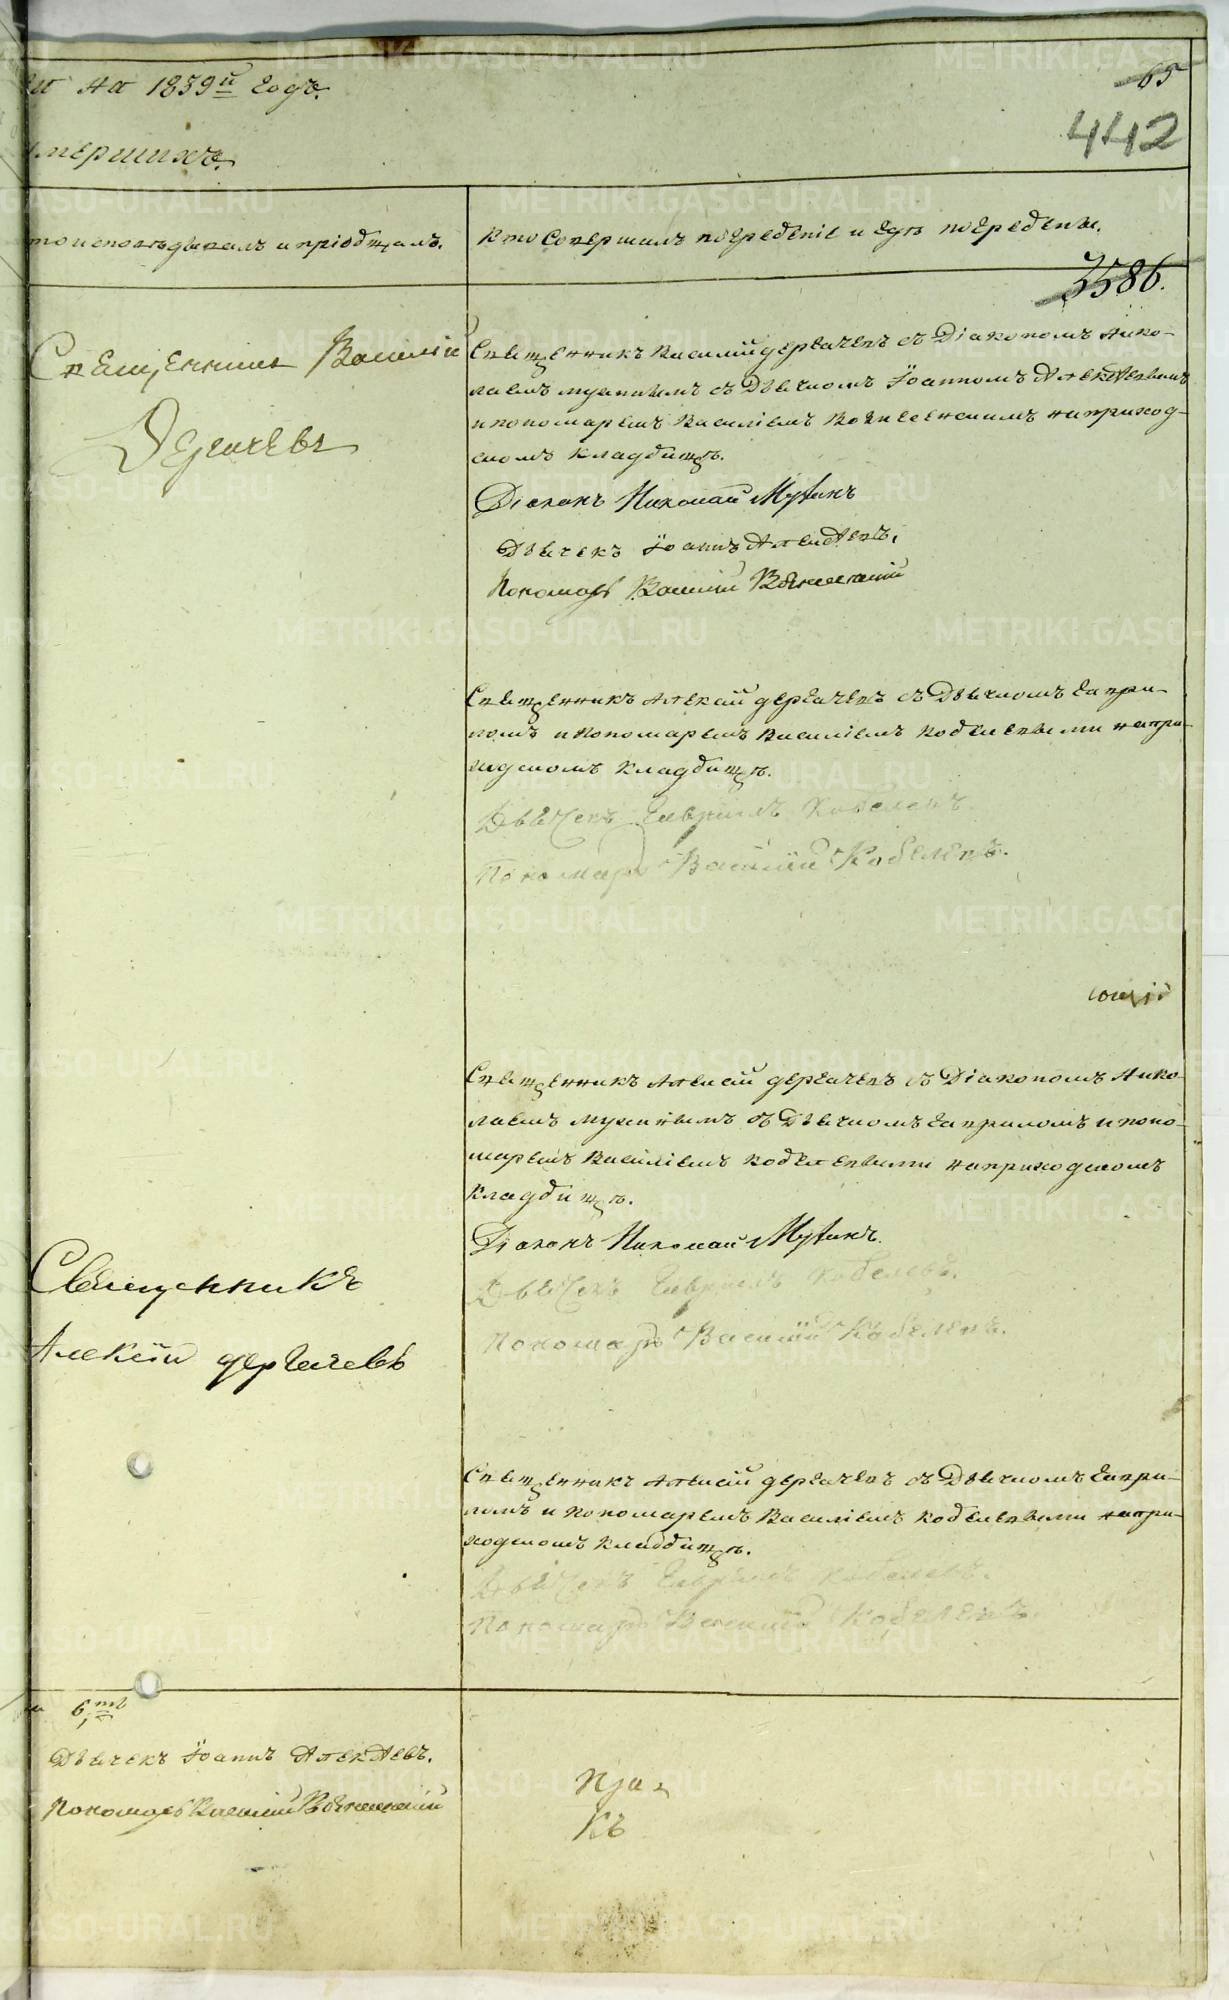 на 1839й годъ.
65
442
умершихъ.
кто исповѣдывалъ и пріобщалъ.
Кто совершалъ погребеніе и гдѣ погребены.
3586.
Священникъ Василій
Дергачевъ
Священникъ Василій Дергачевъ съ Діакономъ Нико-
лаемъ Мутинымъ съ Дьячкомъ Іоанномъ Алексѣевымъ
и пономаремъ Василіемъ Вознесенскимъ на приход-
скомъ кладбищѣ.
Діаконъ Николай Мутинъ
Дьячекъ Іоаннъ Алексѣевъ.
Пономарь Василій Вознесенскій
Священникъ Алексій Дергачевъ съ Дьячкомъ Гаври-
ломъ и Пономаремъ Василіемъ Кобелевыми на при-
ходскомъ кладбищѣ.
Дьячекъ Гавріилъ Кобелевъ
Пономарь Василій Кобелевъ.
Священникъ Алексій Дергачевъ съ Діакономъ Нико-
лаемъ Мутинымъ съ Дьячкомъ Гавриломъ и поно-
маремъ Василіемъ Кобелевыми на приходскомъ
кладбищѣ.
Діаконъ Николай Мутинъ.
Дьячекъ Гавріилъ Кобелевъ.
Пономарь Василій Кобелевъ.
Священникъ
Алексій Дергачевъ
Священникъ Алексій Дергачевъ съ Дьячкомъ Гаври-
ломъ и Пономаремъ Василіемъ Кобелевыми на при-
ходскомъ кладбищѣ.
Дьячекъ Гавріилъ Кобелевъ.
Пономарь Василій Кобелевъ.
6,
Дьячекъ Іоаннъ Алексѣевъ.
Пономарь Василій Вознесенскій
METRIKI.GASO-URAL.RU